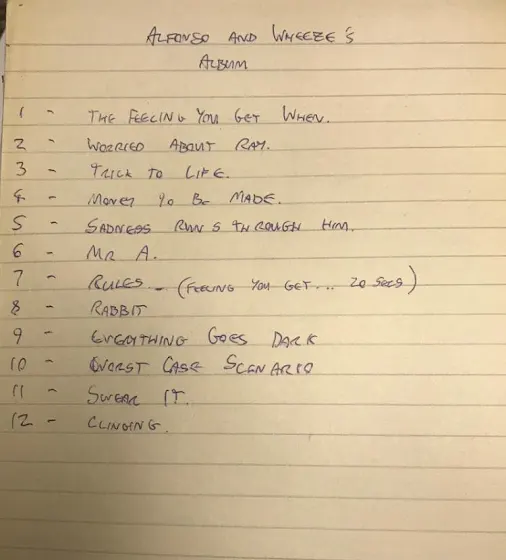 ALFONSO AND WHEEZE'S
ALBUM
1 - THE FEELING YOU GET WHEN.
2 - WORRIED ABOUT RAY.
3 - TRICK TO LIFE.
4 - MONEY TO BE MADE.
5 - SADNESS RUNS THROUGH HIM.
6 - MR A.
7 - RULES - (FEELING YOU GET... 20 SECS)
8 - RABBIT
9 - EVERYTHING GOES DARK
10 - WORST CASE SCENARIO
11 - SWEAR IT.
12 - CLINGING.